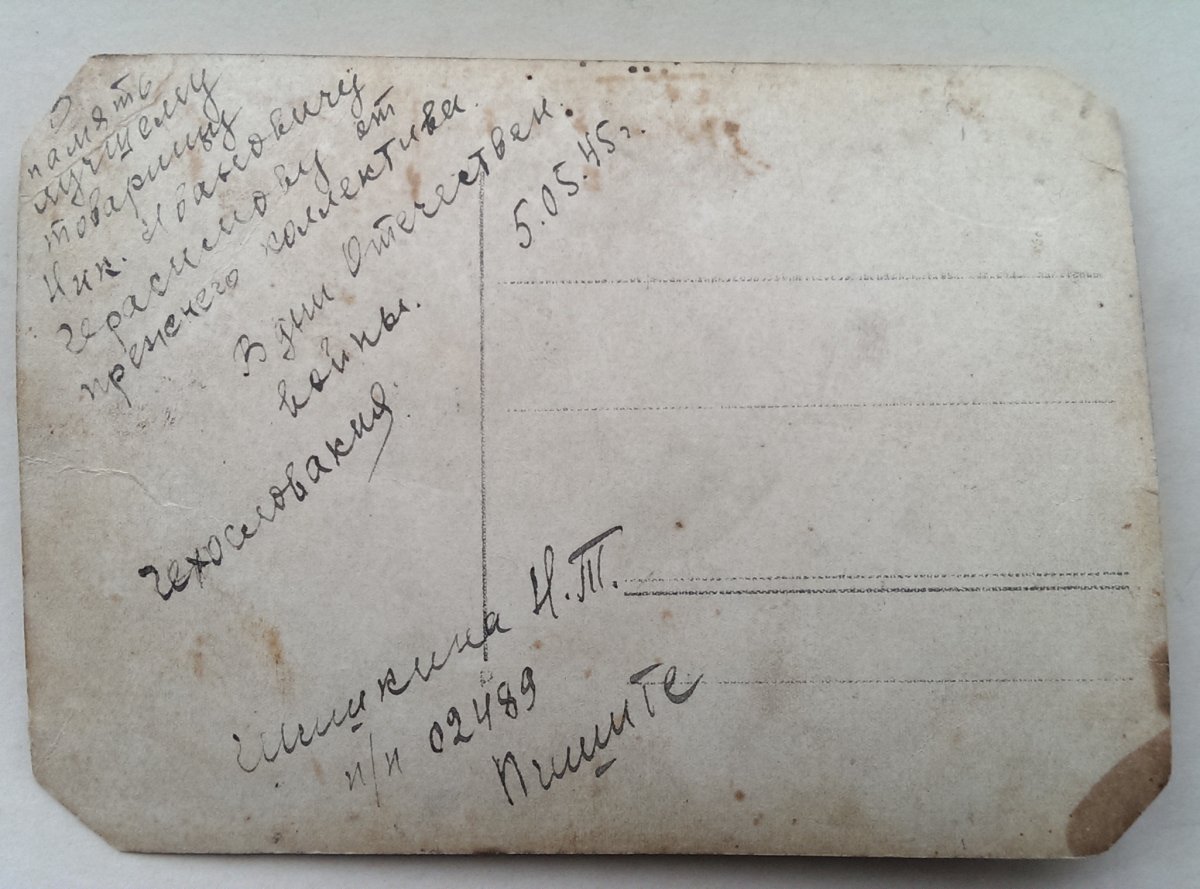 В
память
лучшему
товарищу
Ник. Ивановичу
Герасимову от
прежнего коллектива.
В дни Отечествен.
войны.
5.05.45г.
Чехословакия.
Шишкина Н.Т.
п/п 02489
Пишите